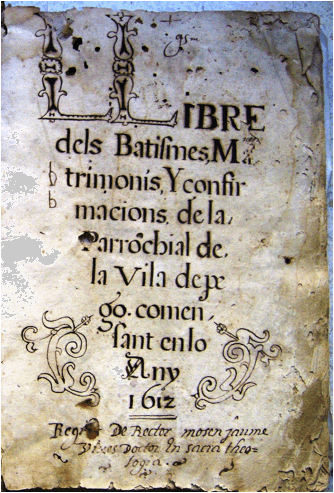 LLIBRE
dels Batismes, Ma
trimonis, Y confir
macions, de la,
Parrochial de,
la Vila de pe
go. comen
sant en lo
Any
1612
De Rector mosen jaume
Doctor In sacra theo-
logia